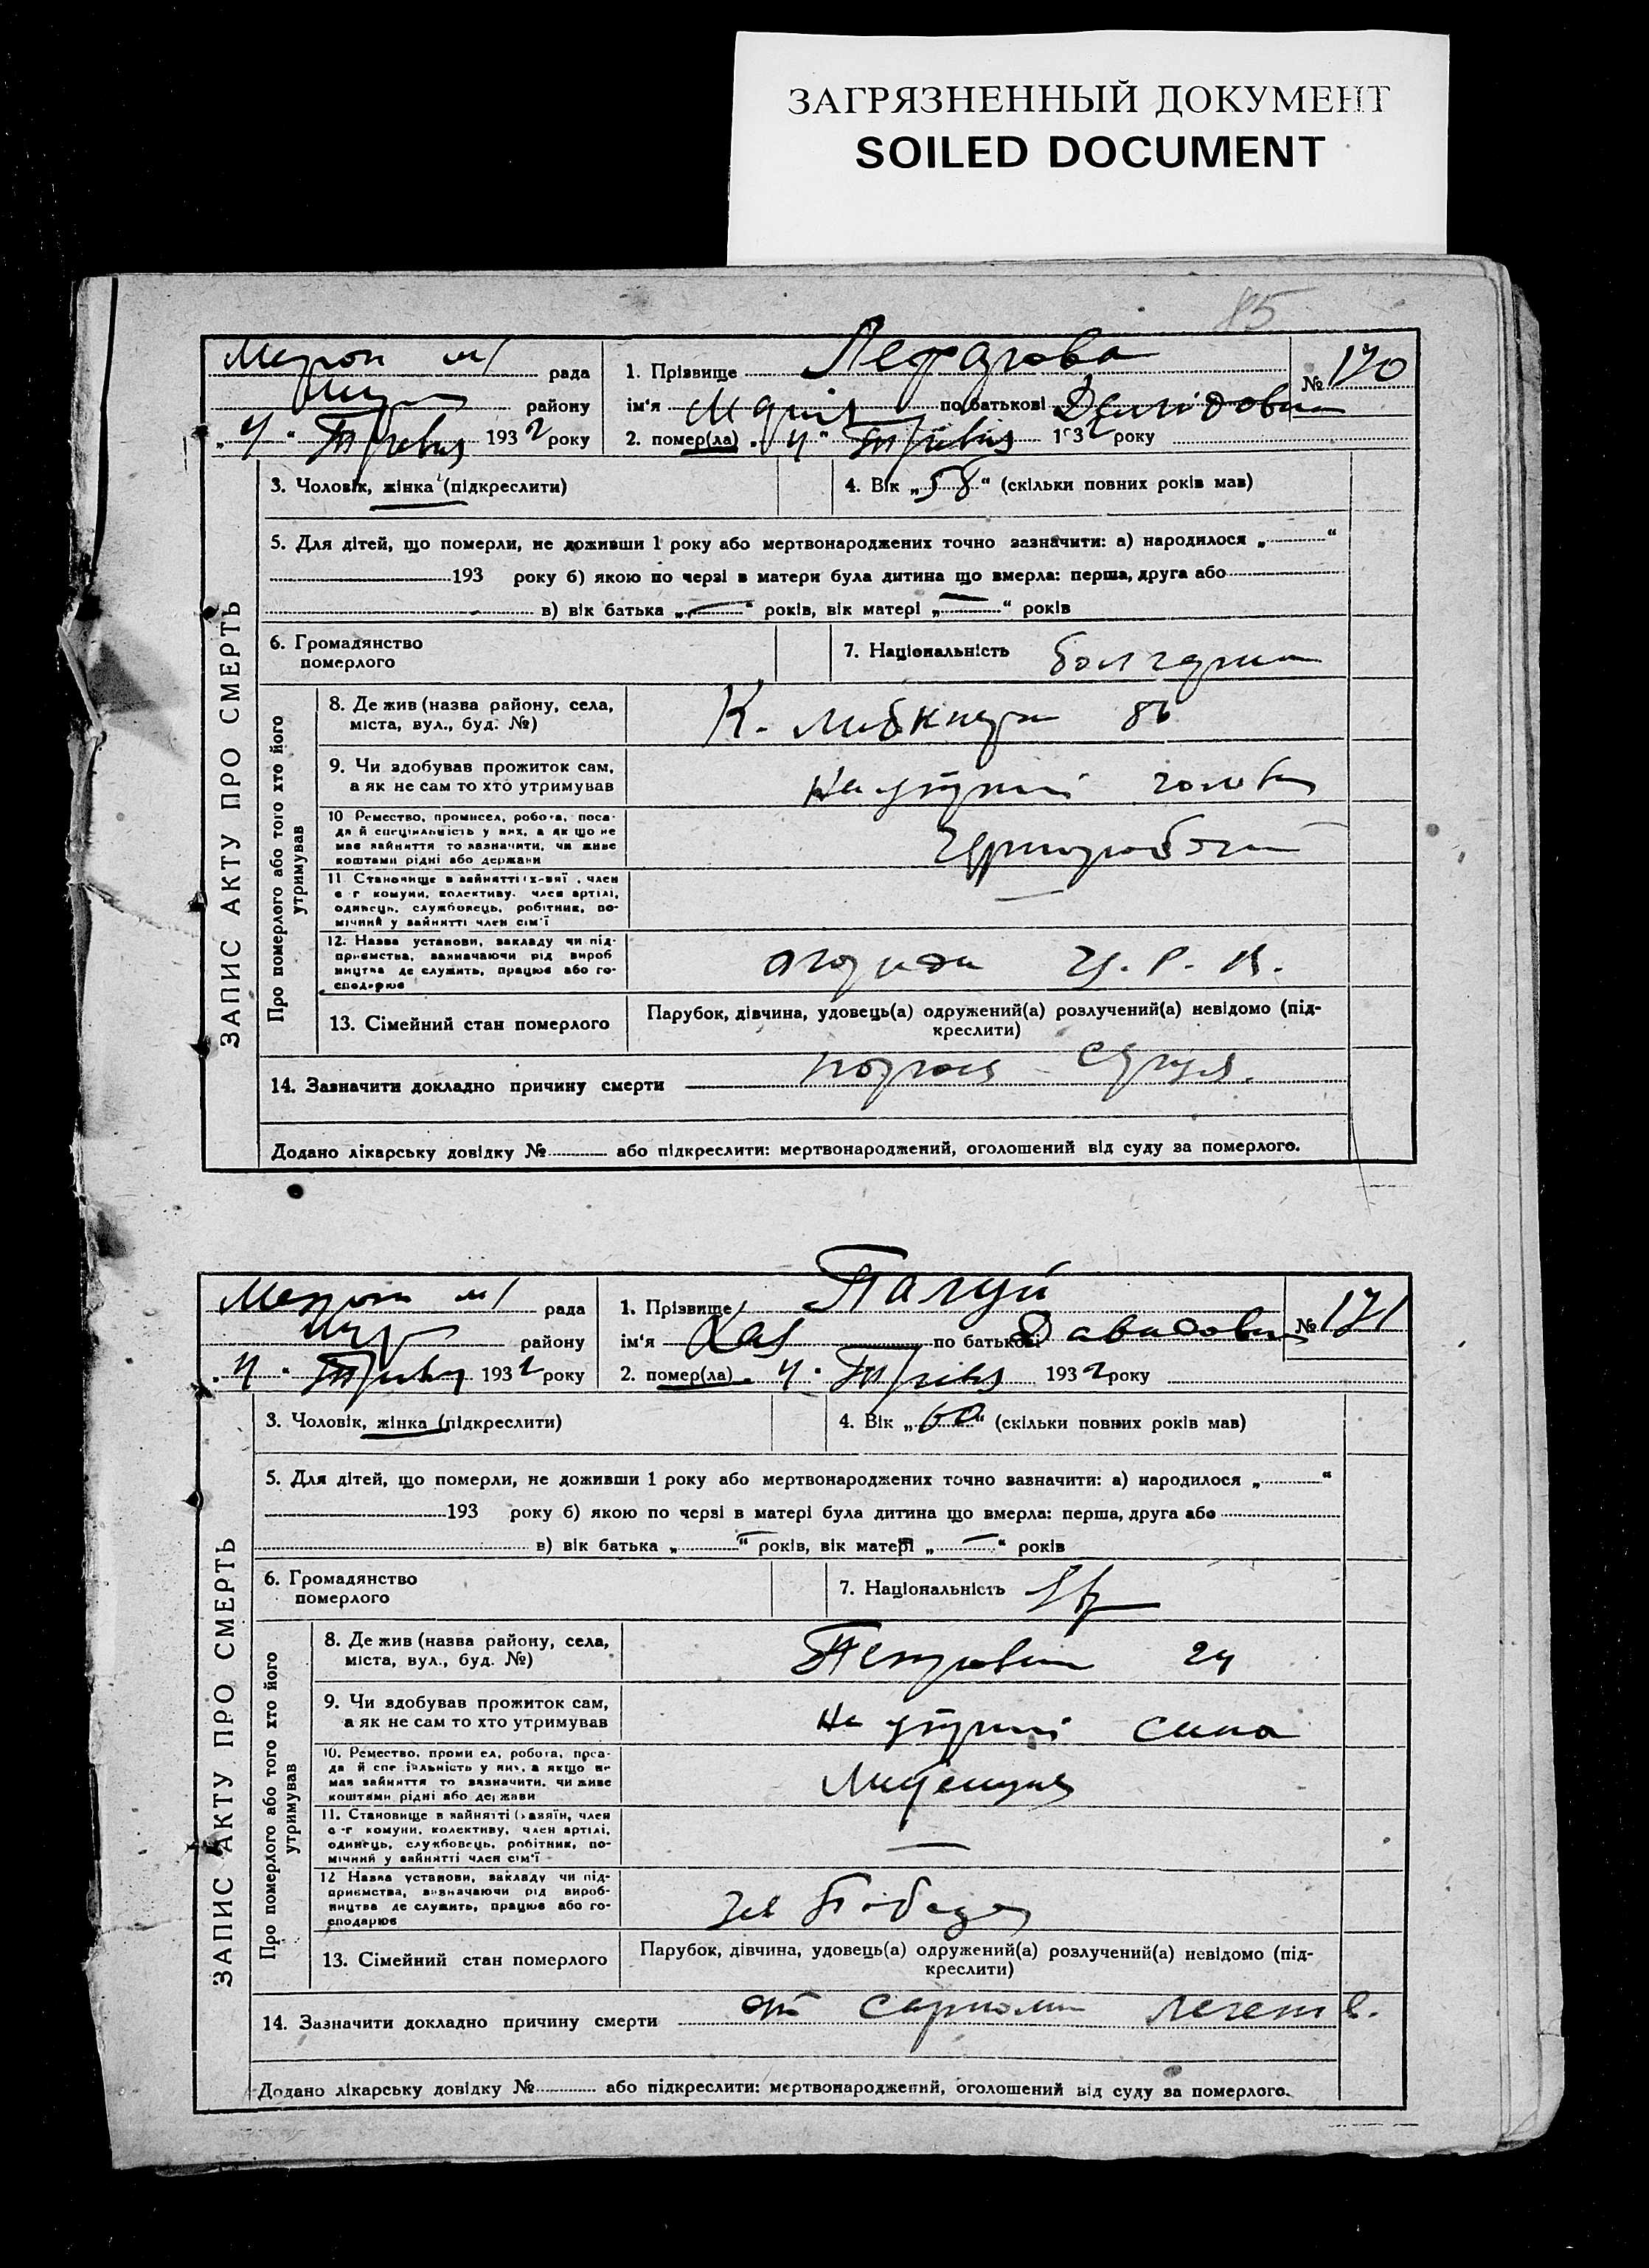 ЗАГРЯЗНЕННЫЙ ДОКУМЕНТ
SOILED DOCUMENT
85
ЗАПИС АКТУ ПРО СМЕРТЬ
рада
району
„4“ Травня 1932 року
1. Прізвище
№ 170
ім'я Марія по батькові
2. помер(ла) „4“ Травня 1932 року
3. Чоловік, жінка (підкреслити)
4. Вік „58“ (скільки повних років мав)
5. Для дітей, що померли, не доживши 1 року або мертвонароджених точно зазначити: а) народилося „ “
193 року б) якою по черзі в матери була дитина що вмерла: перша, друга або
в) вік батька „—“ років, вік матері „—“ років
6. Громадянство
померлого
7. Національність болгарка
Про померлого або того хто його
утримував
8. Де жив (назва району, села,
міста, вул., буд. №)
К. Либкнехта 86
9. Чи здобував прожиток сам,
а як не сам то хто утримував
На утримі
10 Ремество, промисел, робота, поса-
да й спеціяльність у них, а як що не
має зайняття то зазначити, чи живе
коштами рідні або держави
Чорноробочий
11 Становище в зайнятті (х-зяї , член
с г комуни, колективу, член артілі,
одинець, службовець, робітник, по-
мічний у зайнятті член сім'ї
—
12. Назва установи, закладу чи під-
приємства, зазначаючи рід вироб
ництва де служить, працює або го-
сподарює
13. Сімейний стан померлого
Парубок, дівчина, удовець(а) одружений(а) розлучений(а) невідомо (під-
креслити)
14. Зазначити докладно причину смерти порок сердця.
Додано лікарську довідку № або підкреслити: мертвонароджений, оголошений від суду за померлого.
ЗАПИС АКТУ ПРО СМЕРТЬ
рада
району
„4“ Травня 1932 року
1. Прізвище Палуй
№ 171
ім'я Хая по батькові Давидовна
2. помер(ла) „4“ Травня 1932 року
3. Чоловік, жінка (підкреслити)
4. Вік „60“ (скільки повних років мав)
5. Для дітей, що померли, не доживши 1 року або мертвонароджених точно зазначити: а) народилося „ “
193 року б) якою по черзі в матері була дитина що вмерла: перша, друга або
в) вік батька „—“ років, вік матері „—“ років
6. Громадянство
померлого
7. Національність Євр
Про померлого або того хто його
утримував
8. Де жив (назва району, села,
міста, вул., буд. №)
24
9. Чи здобував прожиток сам,
а як не сам то хто утримував
На утримі сина
10. Ремество, проми ел, робота, поса-
да й спе іяльність у них, а якщо не
має зайняття то зазначити, чи живе
коштами рідні або держави
11. Становище в зайнятті (хазяїн, член
с -г комуни, колективу, член артілі,
одинець, службовець, робітник, по-
мічний у зайнятті член сім'ї
—
12 Назва установи, закладу чи під-
приємства, визначаючи рід вироб-
ництва де служить, працює або го-
сподарює
13. Сімейний стан померлого
Парубок, дівчина, удовець(а) одружений(а) розлучений(а) невідомо (під-
креслити)
14. Зазначити докладно причину смерти от саркоми
Додано лікарську довідку № або підкреслити: мертвонароджений, оголошений від суду за померлого.